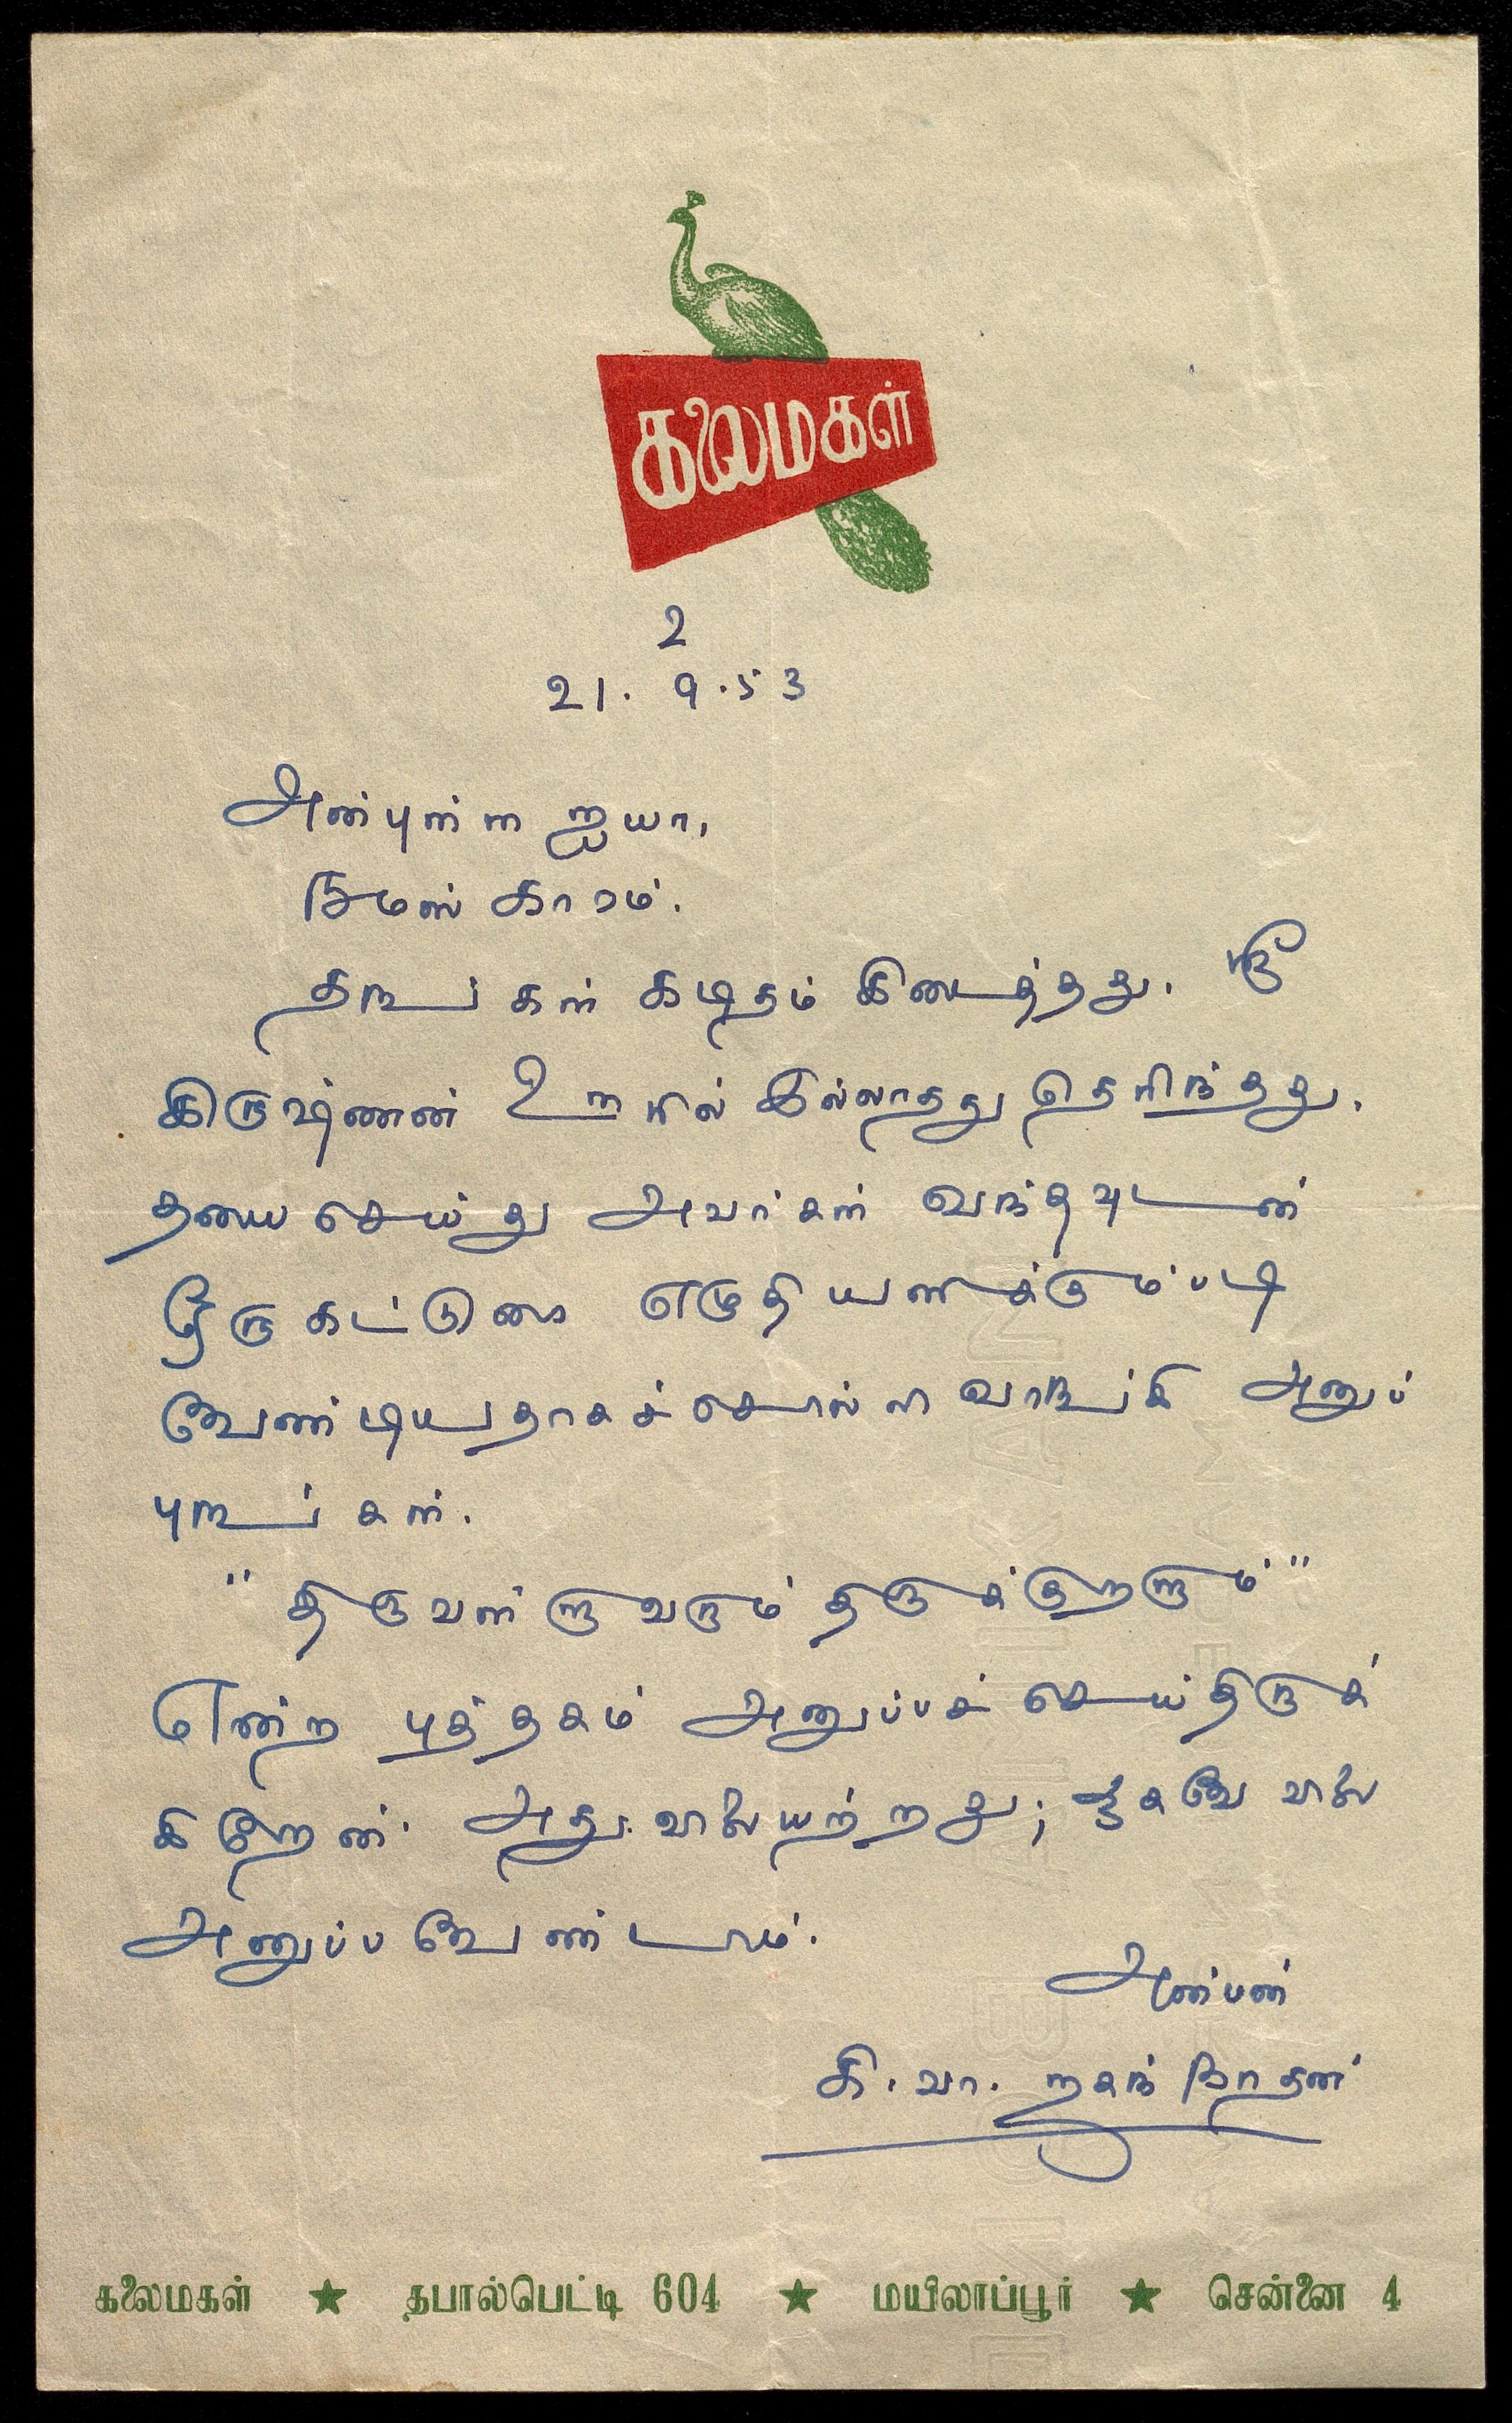 கலைமகள்
உ
21. 9. 53
அன்புள்ள ஐயா,
நமஸ்காரம்.
தங்கள் கடிதம் கிடைத்தது. ஸ்ரீ
கிருஷ்ணன் ஊரில் இல்லாதது தெரிந்தது.
தயை செய்து அவர்கள் வந்தவுடன்
ஒரு கட்டுரை எழுதியளிக்கும்படி
வேண்டியதாகச் சொல்லி வாங்கி அனுப்
புங்கள்.
"திருவள்ளுவரும் திருக்குறளும்"
என்ற புத்தகம் அனுப்பச் செய்திருக்
கிறேன். அது விலையற்றது; ஆகவே விலை
அனுப்ப வேண்டாம்.
அன்பன்
கி. வா. ஜகந்நாதன்
கலைமகள் ★ தபால்பெட்டி 604 ★ மயிலாப்பூர் ★ சென்னை 4